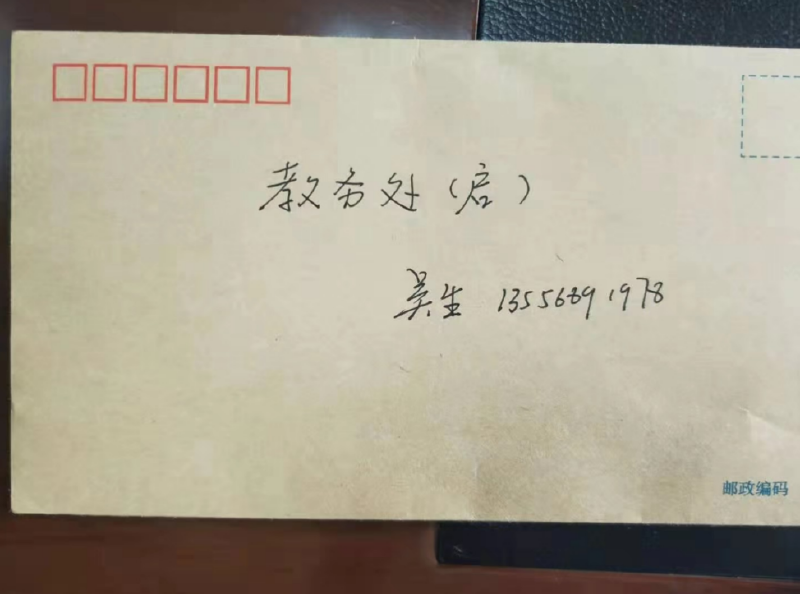 教务处（启）
吴生 13556891978
邮政编码